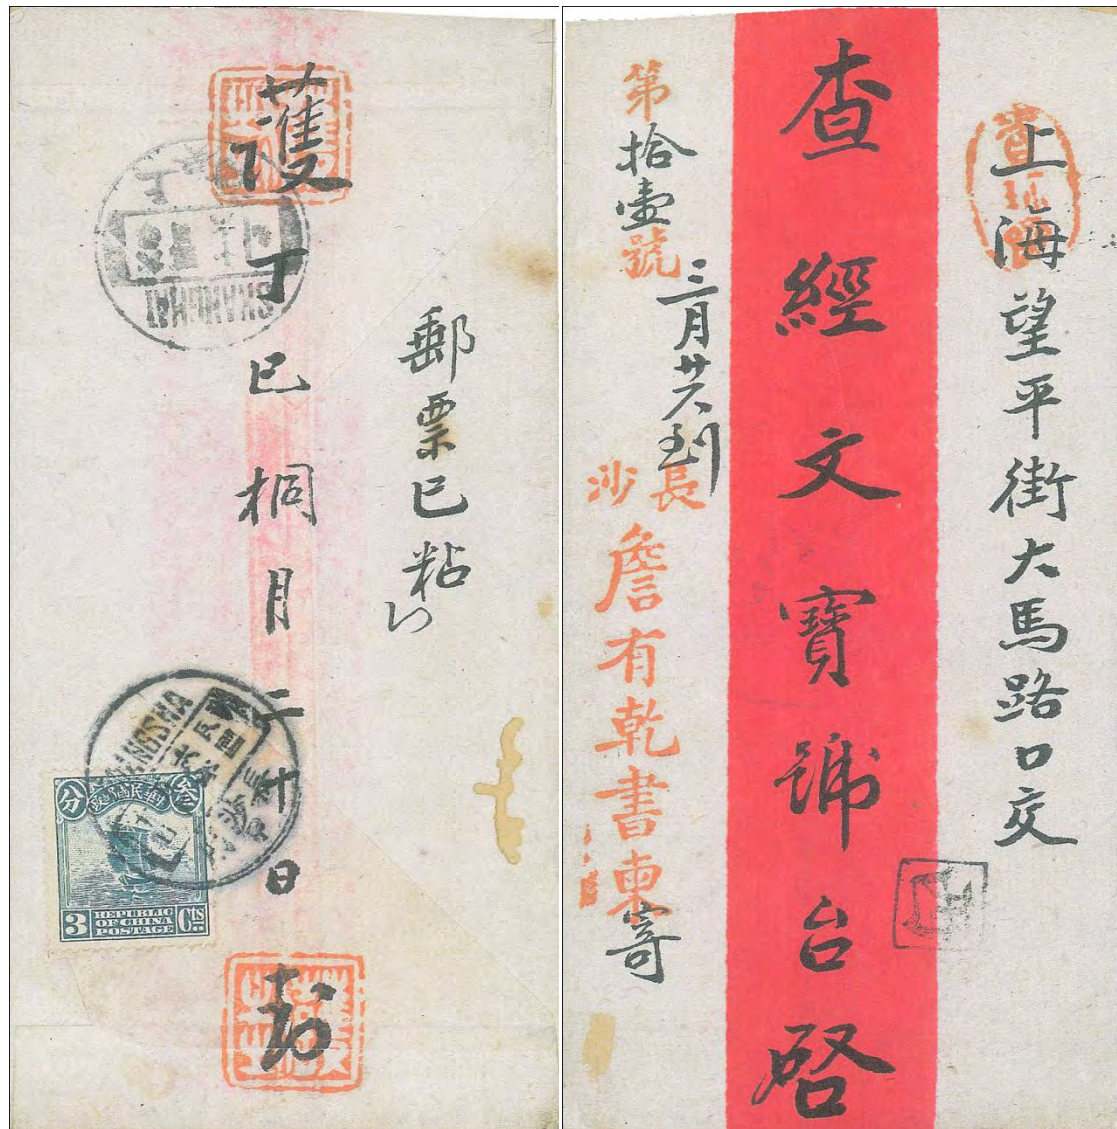 護
丁巳桐月二十日
封
郵票已粘
SHANGHAI
CHANGSHA
分 叁
3 REPUBLIC OF CHINA POSTAGE Cts
上海望平街大馬路口交
查經文寶號台啓
第拾壹號
三月廿六到
長沙
詹有乾書柬寄